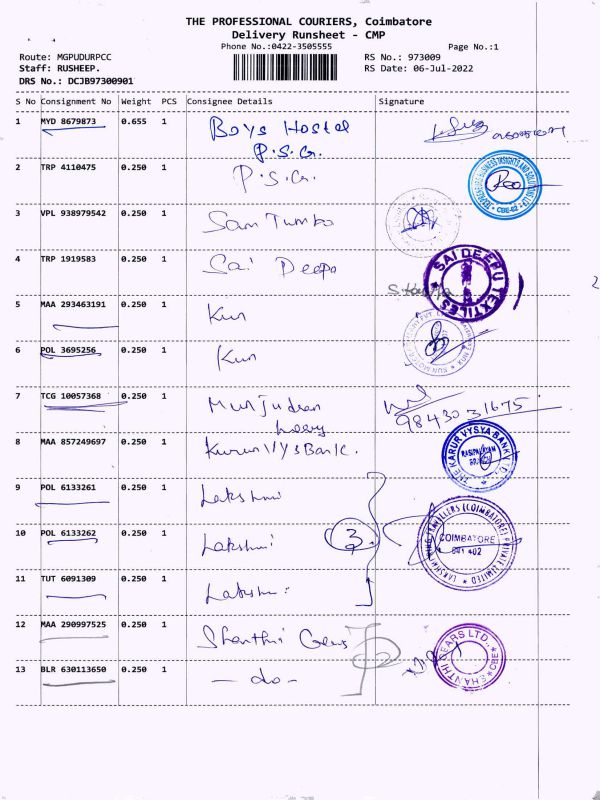 THE PROFESSIONAL COURIERS, Coimbatore
Delivery Runsheet - CMP
Phone No.:0422-3505555 Page No.:1
Route: MGPUDURPCC RS No.: 973009
Staff: RUSHEEP. RS Date: 06-Jul-2022
DRS No.: DCJB97300901
S No Consignment No Weight PCS Consignee Details Signature
1 MYD 8679873 0.655 1 Boys Hostel
P.S.G.
2 TRP 4110475 0.250 1 P.S.G.
CBE-02
3 VPL 938979542 0.250 1 Sam Turbo
4 TRP 1919583 0.250 1 Sai Deepa
SAI DEEPU TEXTILES
5 MAA 293463191 0.250 1 Kun
6 POL 3695256 0.250 1 Kun
7 TCG 10057368 0.250 1
98430 31675
8 MAA 857249697 0.250 1 Karur VYS Bank.
THE KARUR VYSYA BANK LTD.
9 POL 6133261 0.250 1 Lakshmi
10 POL 6133262 0.250 1 Lakshmi 3
LAKSHMI TRAVELLERS (COIMBATORE) PRIVATE LIMITED
COIMBATORE
641 402
11 TUT 6091309 0.250 1 Lakshmi
12 MAA 290997525 0.250 1 Shanthi Gears
SHANTHI GEARS LTD., CBE
13 BLR 630113650 0.250 1 - do -